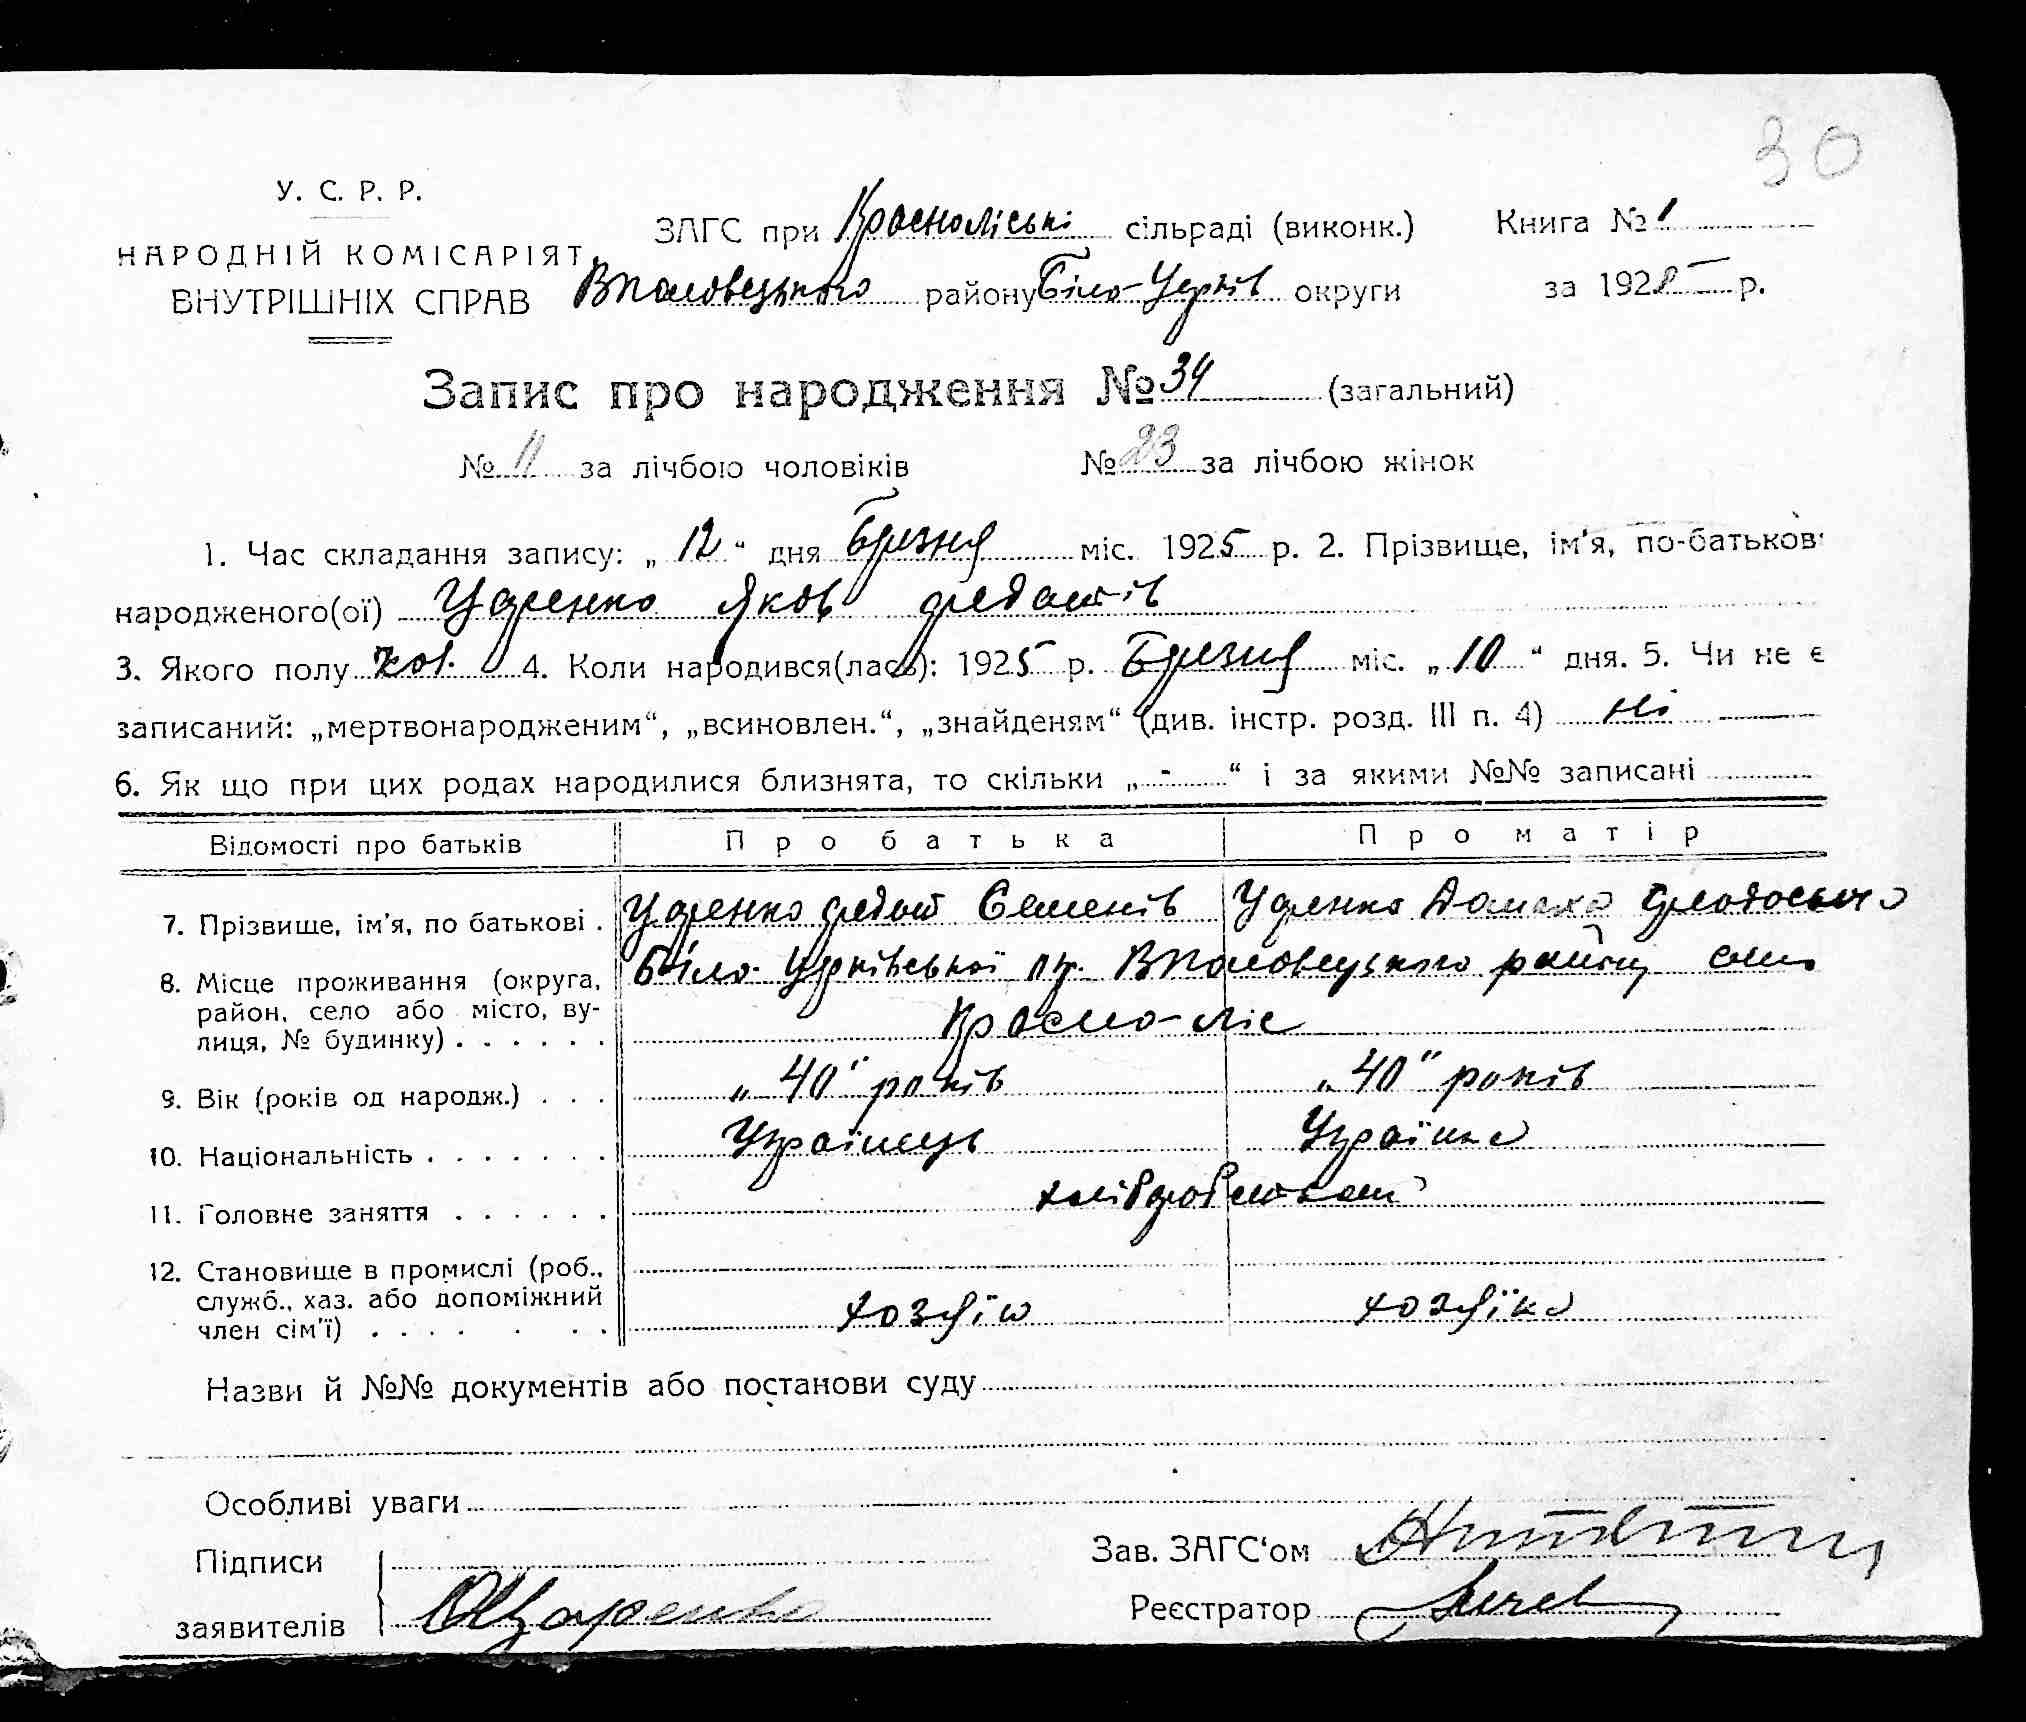 30
У. С. Р. Р.
НАРОДНІЙ КОМІСАРІЯТ
ВНУТРІШНІХ СПРАВ
ЗАГС при Красноліські сільраді (виконк.) Книга № 1
Вполовецького району Біло-Церків округи за 1925 р.
Запис про народження № 34 (загальний)
№ 11 за лічбою чоловіків № 23 за лічбою жінок
1. Час складання запису: „ 12 “ дня Брезня міс. 1925 р. 2. Прізвище, ім'я, по-батьков
народженого(ої) Царенко Яков Федотів
3. Якого полу чол. 4. Коли народився(лась): 1925 р. Брезня міс. „ 10 “ дня. 5. Чи не є
записаний: „мертвонародженим“, „всиновлен.“, „знайденям“ (див. інстр. розд. III п. 4) ні
6. Як що при цих родах народилися близнята, то скільки „ - “ і за якими №№ записані
Відомості про батьків Про батька Про матір
7. Прізвище, ім'я, по батькові . Царенко Федот Семенів Царенко Домаха
8. Місце проживання (округа, Біло-Церківської окр. Вполовецького району село
район, село або місто, ву-
лиця, № будинку) . . . . . . Красно-ліс
9. Вік (років од народж.) . . . „40“ років „40“ років
10. Національність . . . . . . . Українець Українка
11. Головне заняття . . . . . .
12. Становище в промислі (роб.,
служб., хаз. або допоміжний
член сім'ї) . . . . . . . хозяїн хозяїка
Назви й №№ документів або постанови суду
Особливі уваги
Підписи Зав. ЗАГС‘ом
заявителів Царенко Реєстратор